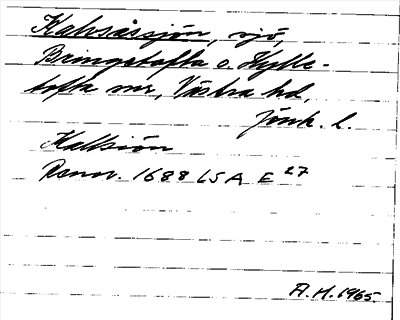 Kalvsåssjön, sjö,
Bringetofta o. Hylle-
tofta snr, Västra hd,
Jönk. l.
Kallsiön
Rannr. 1688 LSA E 27
A.H. 1965.